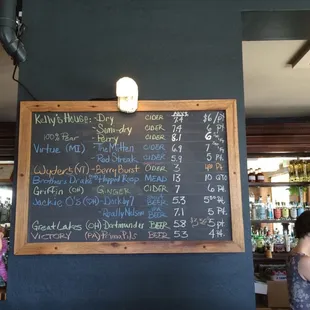 Kelly's House: - Dry CIDER 7.4 $6/pt
- Semi-dry CIDER 7.4 6 pt.
100% Pear - Perry CIDER 8.1 6
Virtue (MI) - The Mitten CIDER 6.9 7
- Red Streak CIDER 5.9 5 pt.
Wyders (VT) - Berry CIDER 3 4 pt.
Brothers Drake - Hopped MEAD 13 10
Griffin (OH) - Ginger CIDER 7 6
Jackie O's (OH) - BEER 5.3 5
- Really BEER 7.1 5 pt.
Great Lakes (OH) Dortmunder BEER 5.8 5 pt
Victory (PA) Prima Pils BEER 5.3 4